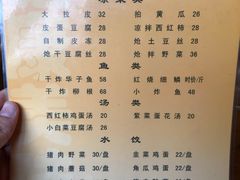 凉菜类
大拉皮 32 拍黄瓜 26
皮蛋豆腐 28 凉拌西红柿 28
自制皮冻 28 炝土豆丝 28
炝干豆腐丝 28 炝拌野菜 38
鱼类
干炸华子鱼 58 红烧细鳞 时价/斤
干炸柳根 68 小炸鱼 58
汤类
西红柿鸡蛋汤 20 紫菜蛋花汤 20
小白菜豆腐汤 28
水饺
猪肉野菜 30/盘 韭菜鸡蛋 22/盘
猪肉蘑菇 30/盘 角瓜鸡蛋 22/盘